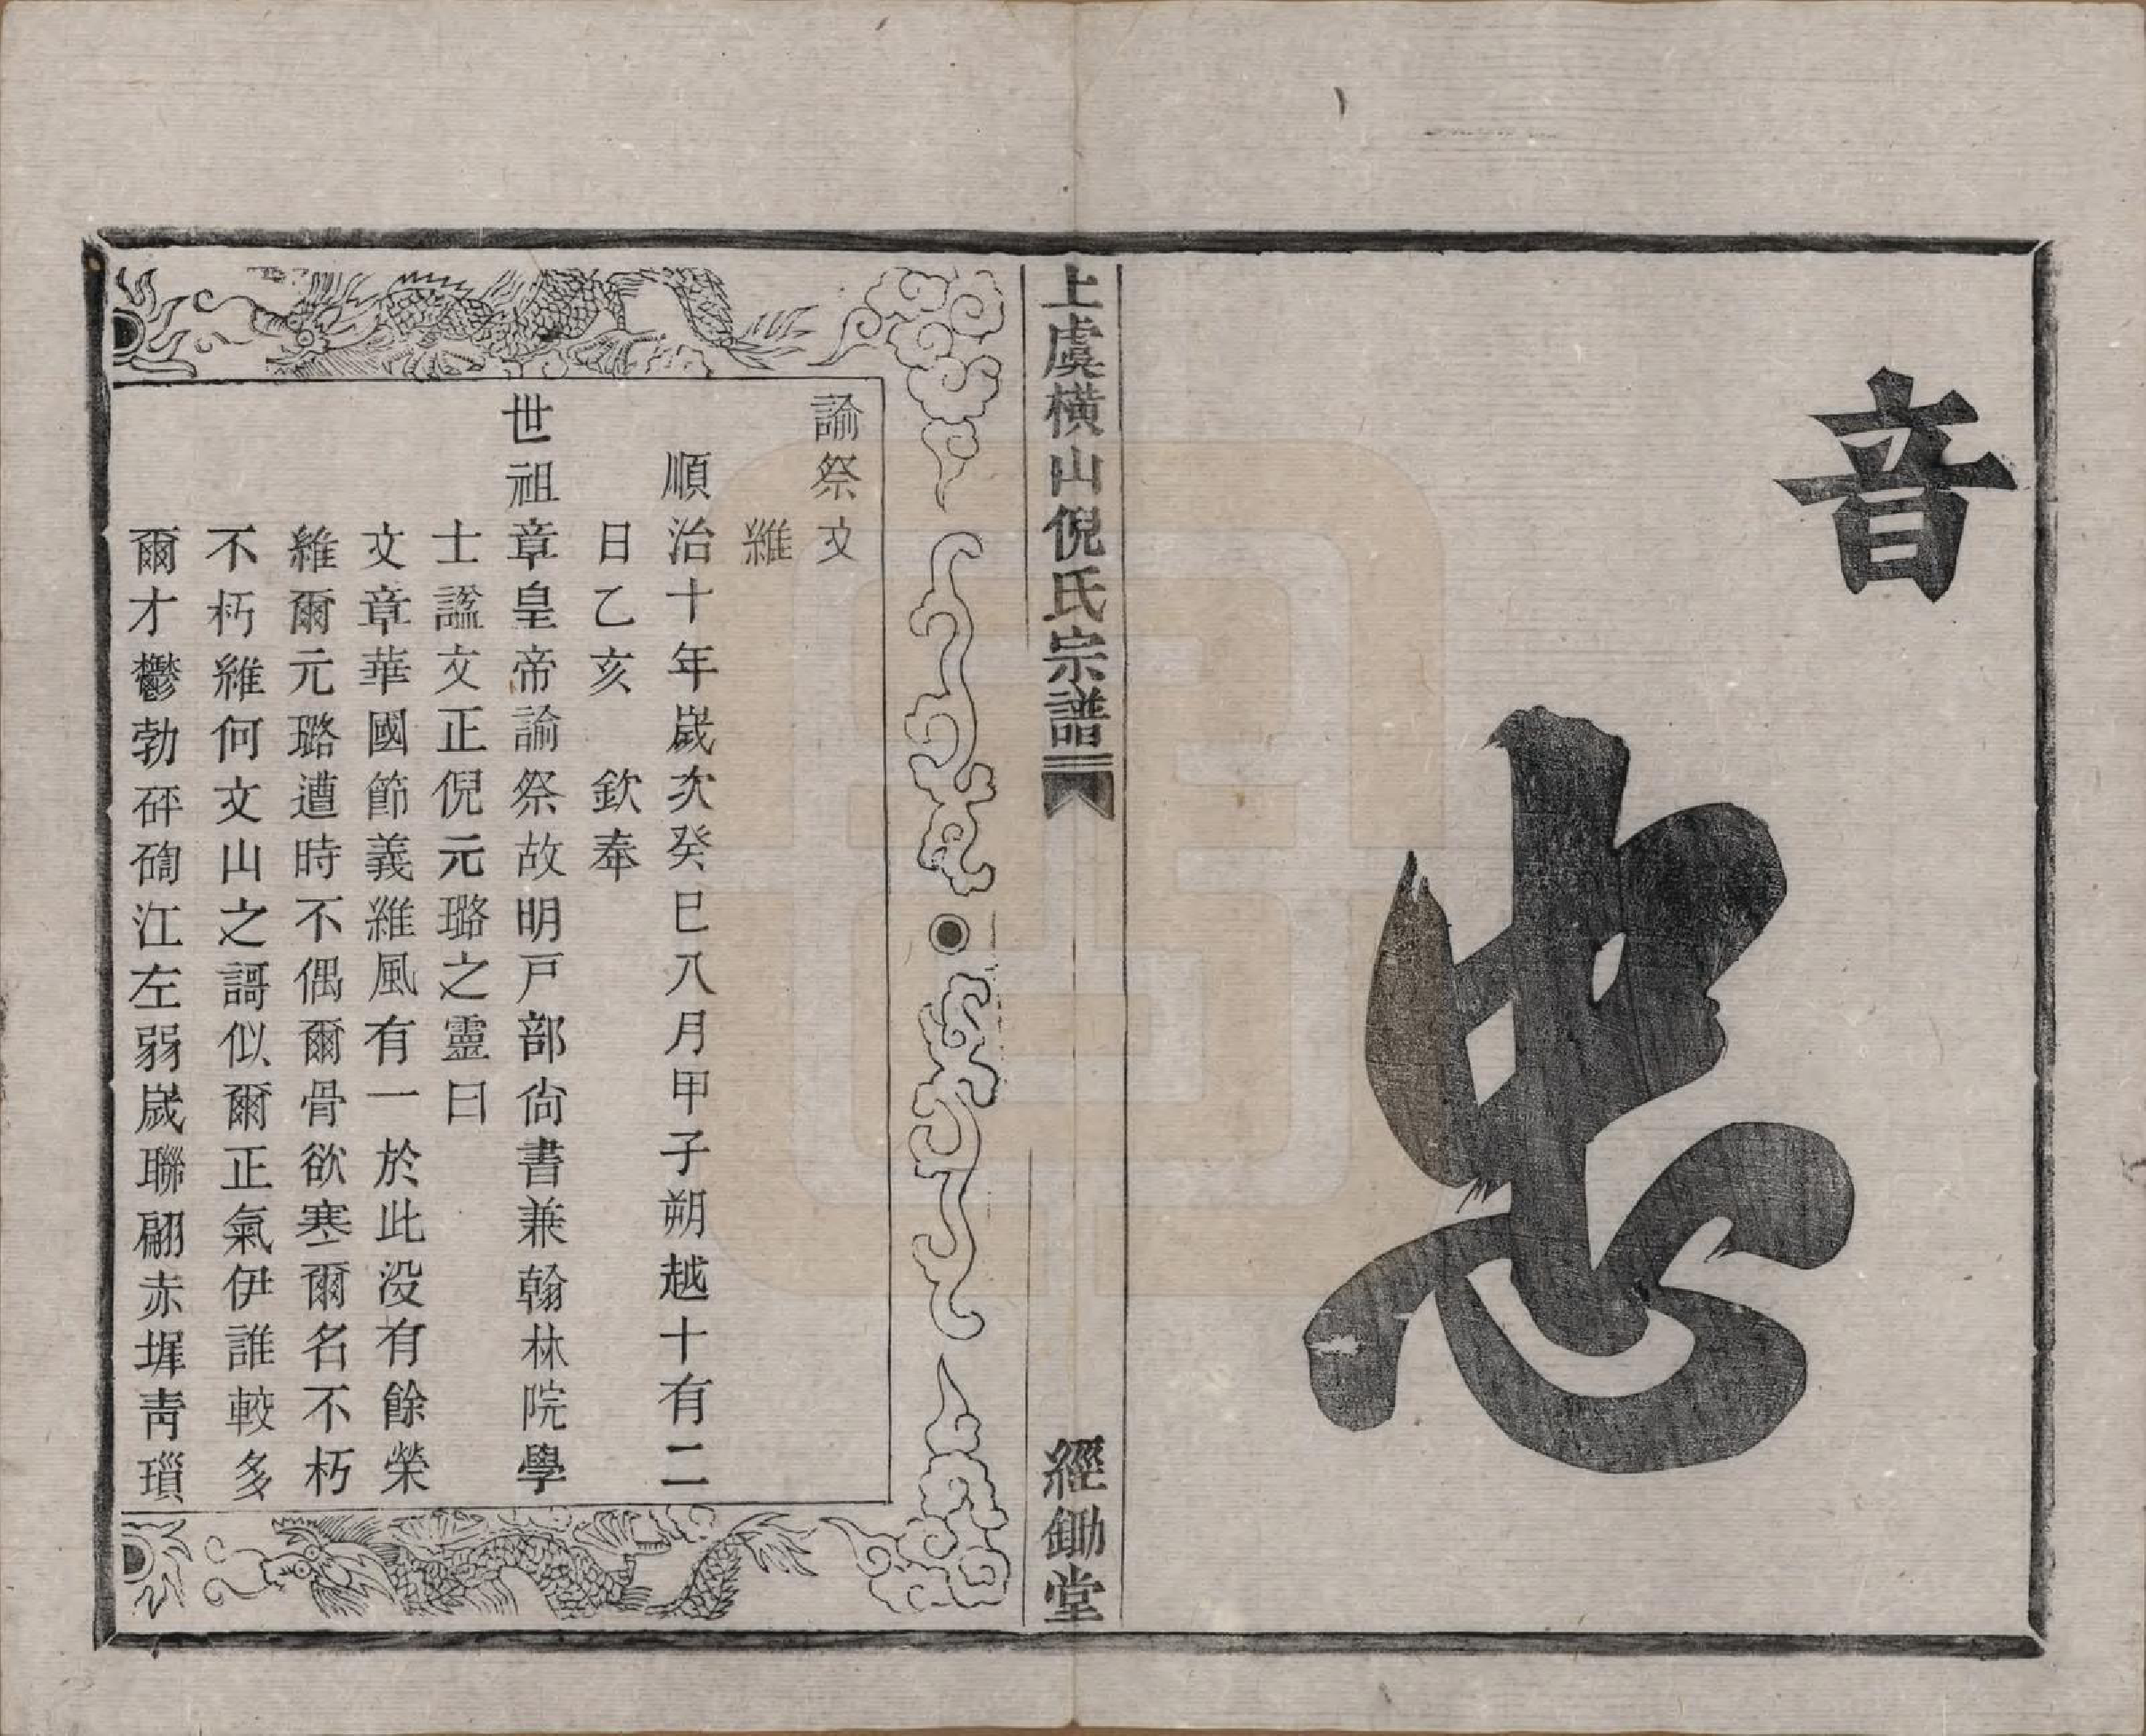 音
忠
上虞橫山倪氏宗譜
經鋤堂
諭祭文
維
順治十年歲次癸巳八月甲子朔越十有二
日乙亥　欽奉
世祖章皇帝諭祭故明戸部尙書兼翰林院學
士謚文正倪元璐之靈曰
文章華國節義維風有一於此没有餘榮
維爾元璐遭時不偶爾骨欲寒爾名不朽
不朽維何文山之謌似爾正氣伊誰較多
爾才鬱勃砰磤江左弱歲聯翩赤墀靑瑣